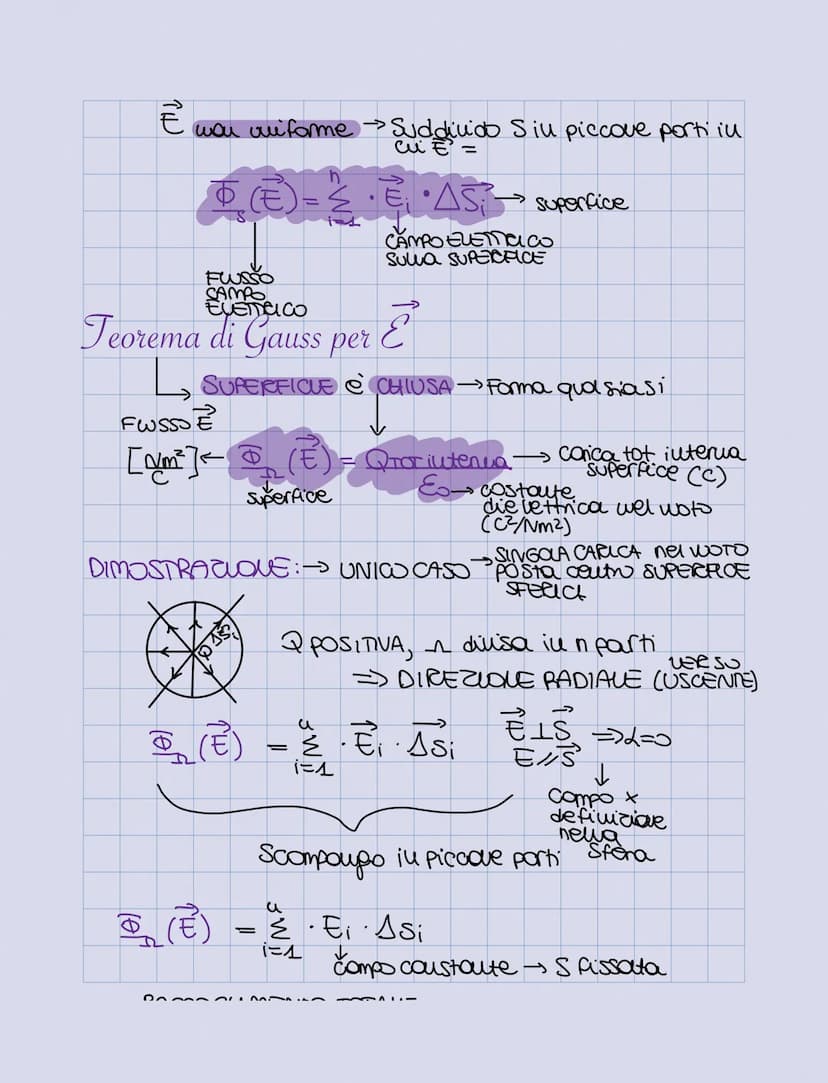 E⃗ non uniforme → Suddivido S in piccole parti in
cui E⃗ =
Φ_S (E⃗) = Σ_{i=1}^{n} · E⃗i · ΔS⃗i → superfice
CAMPO ELETTRICO
SULLA SUPERFICE
FLUSSO
CAMPO
ELETTRICO
Teorema di Gauss per E⃗
SUPERFICIE è CHIUSA → Forma qualsiasi
FLUSSO E⃗
[Nm²/C] ← Φ_Ω (E⃗) = Qtot interna / ε₀ → carica tot interna
superfice (C)
superfice
→ costante
dielettrica nel vuoto
(C²/Nm²)
DIMOSTRAZIONE: → UNICO CASO → SINGOLA CARICA nel VUOTO
POSTA centro SUPERFICE
SFERICA
Q
ΔSi
Q POSITIVA, Ω divisa in n parti
⇒ DIREZIONE RADIALE (VERSO USCENTE)
Φ_Ω (E⃗) = Σ_{i=1}^{n} · E⃗i · ΔS⃗i
E⃗ ⊥ S⃗
E // S⃗ ⇒ α=0
Campo x
definizione
nella
sfera
Scompongo in piccole parti
Φ_Ω (E⃗) = Σ_{i=1}^{n} · Ei · ΔSi
campo constante → S fissata